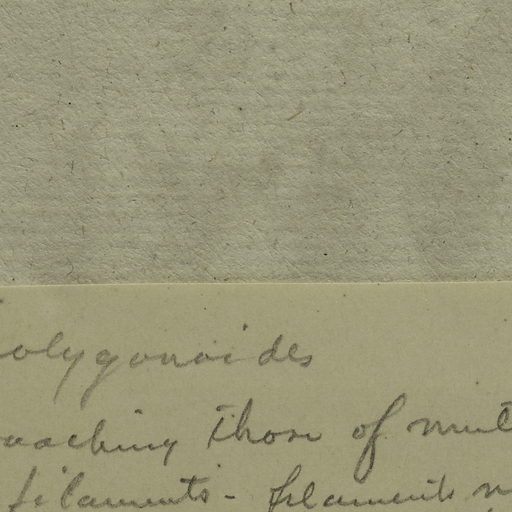 olygonoides
roaching those of mut
filaments - filaments